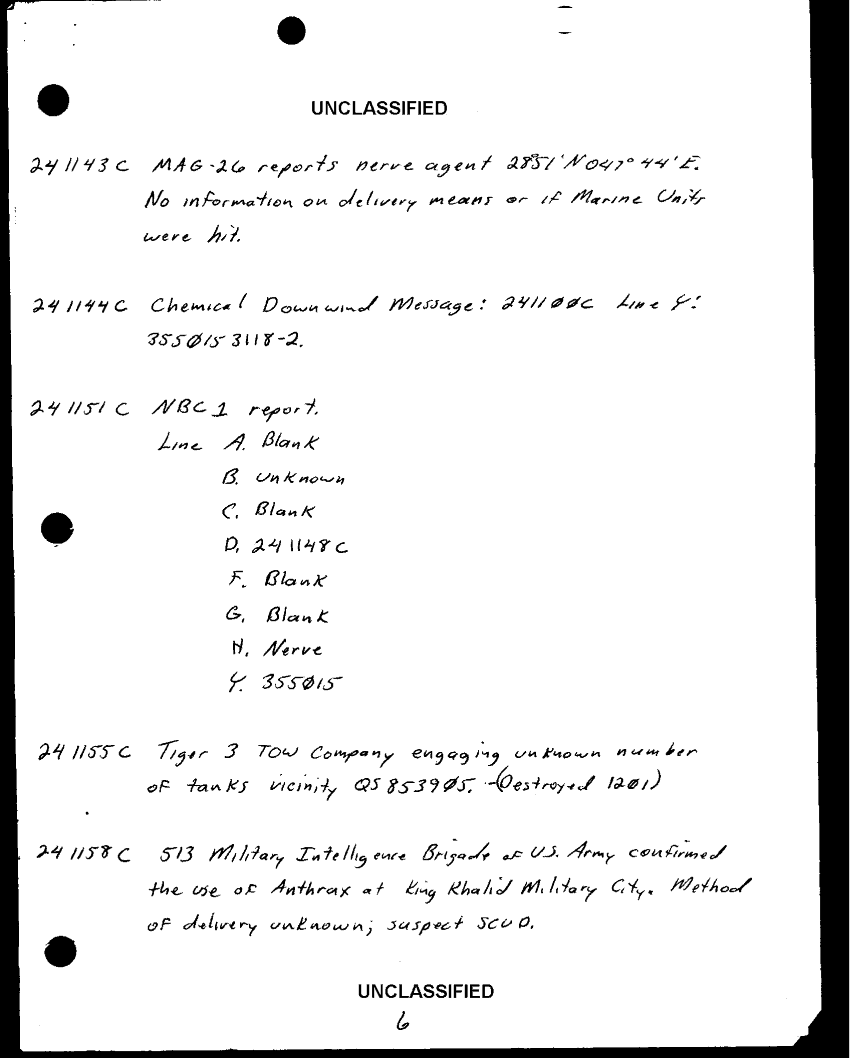 UNCLASSIFIED
241143C MAG-26 reports nerve agent 28°51'N 047°44'E.
No information on delivery means or if Marine Units
were hit.
241144C Chemical Downwind Message: 2411ØØC Line Y:
355Ø15 3118-2.
241151C NBC 1 report.
Line A. Blank
B. Unknown
C. Blank
D. 241148C
F. Blank
G. Blank
H. Nerve
Y. 355Ø15
241155C Tiger 3 TOW Company engaging unknown number
of tanks vicinity QS 8539Ø5. -(Destroyed 1201)
241158C 513 Military Intelligence Brigade of U.S. Army confirmed
the use of Anthrax at King Khalid Military City. Method
of delivery unknown; suspect SCUD.
UNCLASSIFIED
6